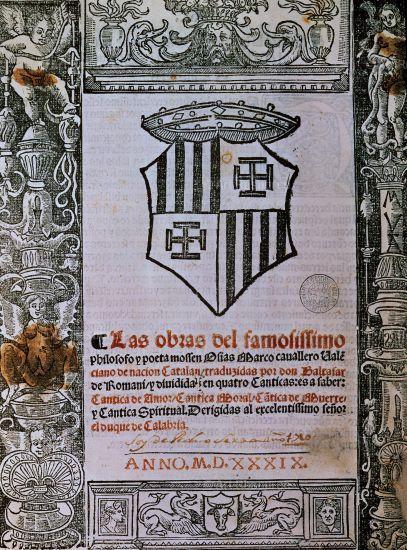 ¶ Las obras del famosissimo
philosofo y poeta mossen Osias Marco cauallero Ualē
ciano de nacion Catalan/traduzidas por don Baltasar
de Romani/y diuididas en quatro Canticas: es a saber:
Cantica de Amor/Cantica Moral/Cātica de Muerte/
y Cantica Spiritual. Derigidas al excelentissimo señor
el duque de Calabria.
Soy de
ANNO. M.D.XXXIX.